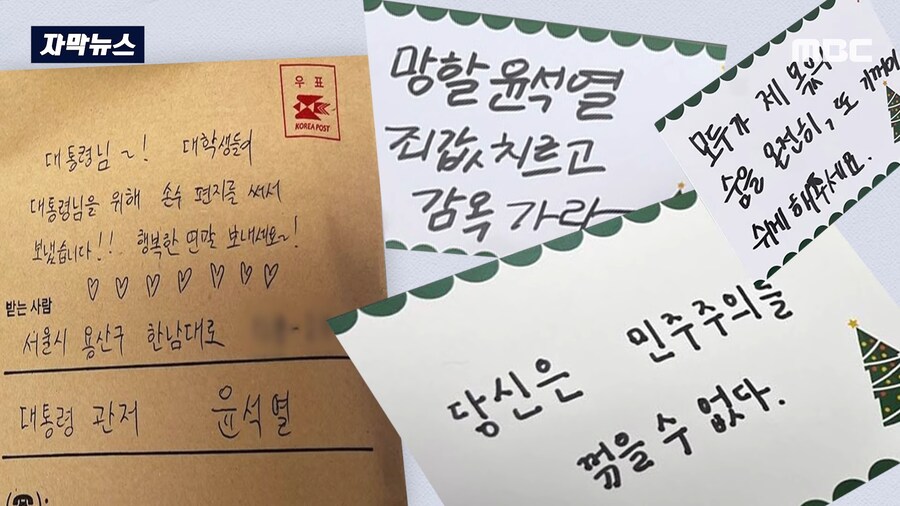 자막뉴스
MBC
우표
KOREA POST
대통령님~! 대학생들이
대통령님을 위해 손수 편지를 써서
보냈습니다!! 행복한 연말 보내세요~!
♡ ♡ ♡ ♡ ♡ ♡ ♡
받는 사람
서울시 용산구 한남대로
대통령 관저 윤석열
(☎):
망할 윤석열
죄값 치르고
감옥 가라~
모두가 제 몫의
숨을 온전히, 또 기꺼이
쉬게 해주세요.
당신은 민주주의를
꺾을 수 없다.